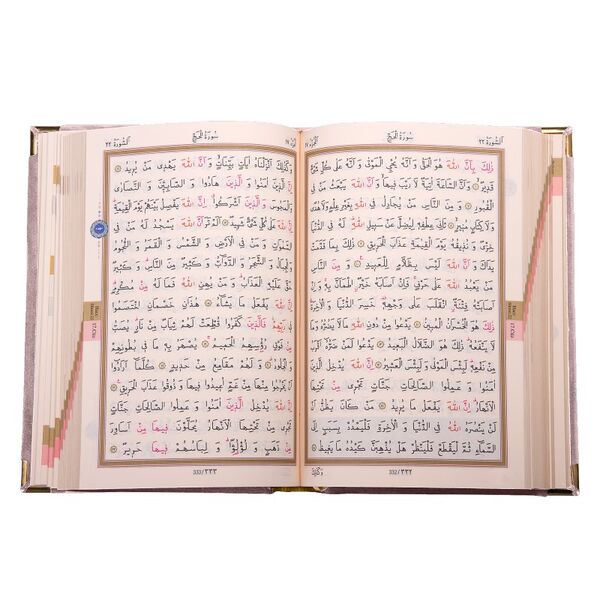 اَلسُّورَةُ ٢٢
سُورَةُ الْحَجِّ
اَلْجُزْءُ ١٧
ذٰلِكَ بِاَنَّ اللّٰهَ هُوَ الْحَقُّ وَاَنَّهُ يُحْيِ الْمَوْتٰى وَاَنَّهُ عَلٰى كُلِّ شَيْءٍ
قَدِيرٌ ۞ وَاَنَّ السَّاعَةَ اٰتِيَةٌ لَا رَيْبَ فِيهَا وَاَنَّ اللّٰهَ يَبْعَثُ مَنْ فِي
الْقُبُورِ ۞ وَمِنَ النَّاسِ مَنْ يُجَادِلُ فِي اللّٰهِ بِغَيْرِ عِلْمٍ وَلَا هُدًى
وَلَا كِتَابٍ مُنِيرٍ ۞ ثَانِيَ عِطْفِهِ لِيُضِلَّ عَنْ سَبِيلِ اللّٰهِ لَهُ فِي الدُّنْيَا
خِزْيٌ وَنُذِيقُهُ يَوْمَ الْقِيٰمَةِ عَذَابَ الْحَرِيقِ ۞ ذٰلِكَ بِمَا قَدَّمَتْ
يَدَاكَ وَاَنَّ اللّٰهَ لَيْسَ بِظَلَّامٍ لِلْعَبِيدِ ۞ وَمِنَ النَّاسِ
مَنْ يَعْبُدُ اللّٰهَ عَلٰى حَرْفٍ فَاِنْ اَصَابَهُ خَيْرٌ اطْمَاَنَّ بِهِ وَاِنْ
اَصَابَتْهُ فِتْنَةٌ انْقَلَبَ عَلٰى وَجْهِهِ خَسِرَ الدُّنْيَا وَالْاٰخِرَةَ
ذٰلِكَ هُوَ الْخُسْرَانُ الْمُبِينُ ۞ يَدْعُوا مِنْ دُونِ اللّٰهِ مَا لَا يَضُرُّهُ
وَمَا لَا يَنْفَعُهُ ذٰلِكَ هُوَ الضَّلَالُ الْبَعِيدُ ۞ يَدْعُوا لَمَنْ ضَرُّهُ
اَقْرَبُ مِنْ نَفْعِهِ لَبِئْسَ الْمَوْلٰى وَلَبِئْسَ الْعَشِيرُ ۞ اِنَّ اللّٰهَ
يُدْخِلُ الَّذِينَ اٰمَنُوا وَعَمِلُوا الصَّالِحَاتِ جَنَّاتٍ تَجْرِي مِنْ تَحْتِهَا
الْاَنْهَارُ اِنَّ اللّٰهَ يَفْعَلُ مَا يُرِيدُ ۞ مَنْ كَانَ يَظُنُّ اَنْ
لَنْ يَنْصُرَهُ اللّٰهُ فِي الدُّنْيَا وَالْاٰخِرَةِ فَلْيَمْدُدْ بِسَبَبٍ اِلَى
السَّمَاءِ ثُمَّ لْيَقْطَعْ فَلْيَنْظُرْ هَلْ يُذْهِبَنَّ كَيْدُهُ مَا يَغِيظُ ۞
332/٣٣٢
وَكَذٰلِكَ
17.Cüz
اَلسُّورَةُ ٢٢
سُورَةُ الْحَجِّ
وَكَذٰلِكَ اَنْزَلْنَاهُ اٰيَاتٍ بَيِّنَاتٍ وَاَنَّ اللّٰهَ يَهْدِي مَنْ يُرِيدُ ۞
اِنَّ الَّذِينَ اٰمَنُوا وَالَّذِينَ هَادُوا وَالصَّابِـِٔينَ وَالنَّصَارٰى
وَالْمَجُوسَ وَالَّذِينَ اَشْرَكُوا اِنَّ اللّٰهَ يَفْصِلُ بَيْنَهُمْ يَوْمَ الْقِيٰمَةِ
اِنَّ اللّٰهَ عَلٰى كُلِّ شَيْءٍ شَهِيدٌ ۞ اَلَمْ تَرَ اَنَّ اللّٰهَ يَسْجُدُ لَهُ مَنْ فِي
السَّمٰوَاتِ وَمَنْ فِي الْاَرْضِ وَالشَّمْسُ وَالْقَمَرُ وَالنُّجُومُ
وَالْجِبَالُ وَالشَّجَرُ وَالدَّوَابُّ وَكَثِيرٌ مِنَ النَّاسِ وَكَثِيرٌ
حَقَّ عَلَيْهِ الْعَذَابُ وَمَنْ يُهِنِ اللّٰهُ فَمَا لَهُ مِنْ مُكْرِمٍ
اِنَّ اللّٰهَ يَفْعَلُ مَا يَشَاءُ ۞ هٰذَانِ خَصْمَانِ اخْتَصَمُوا
فِي رَبِّهِمْ فَالَّذِينَ كَفَرُوا قُطِّعَتْ لَهُمْ ثِيَابٌ مِنْ نَارٍ يُصَبُّ
مِنْ فَوْقِ رُؤُسِهِمُ الْحَمِيمُ ۞ يُصْهَرُ بِهِ مَا فِي بُطُونِهِمْ
وَالْجُلُودُ ۞ وَلَهُمْ مَقَامِعُ مِنْ حَدِيدٍ ۞ كُلَّمَا اَرَادُوا
اَنْ يَخْرُجُوا مِنْهَا مِنْ غَمٍّ اُعِيدُوا فِيهَا وَذُوقُوا عَذَابَ الْحَرِيقِ ۞
اِنَّ اللّٰهَ يُدْخِلُ الَّذِينَ اٰمَنُوا وَعَمِلُوا الصَّالِحَاتِ جَنَّاتٍ
تَجْرِي مِنْ تَحْتِهَا الْاَنْهَارُ يُحَلَّوْنَ فِيهَا مِنْ اَسَاوِرَ
مِنْ ذَهَبٍ وَلُؤْلُؤًا وَلِبَاسُهُمْ فِيهَا حَرِيرٌ ۞
333/٣٣٣
17.Cüz